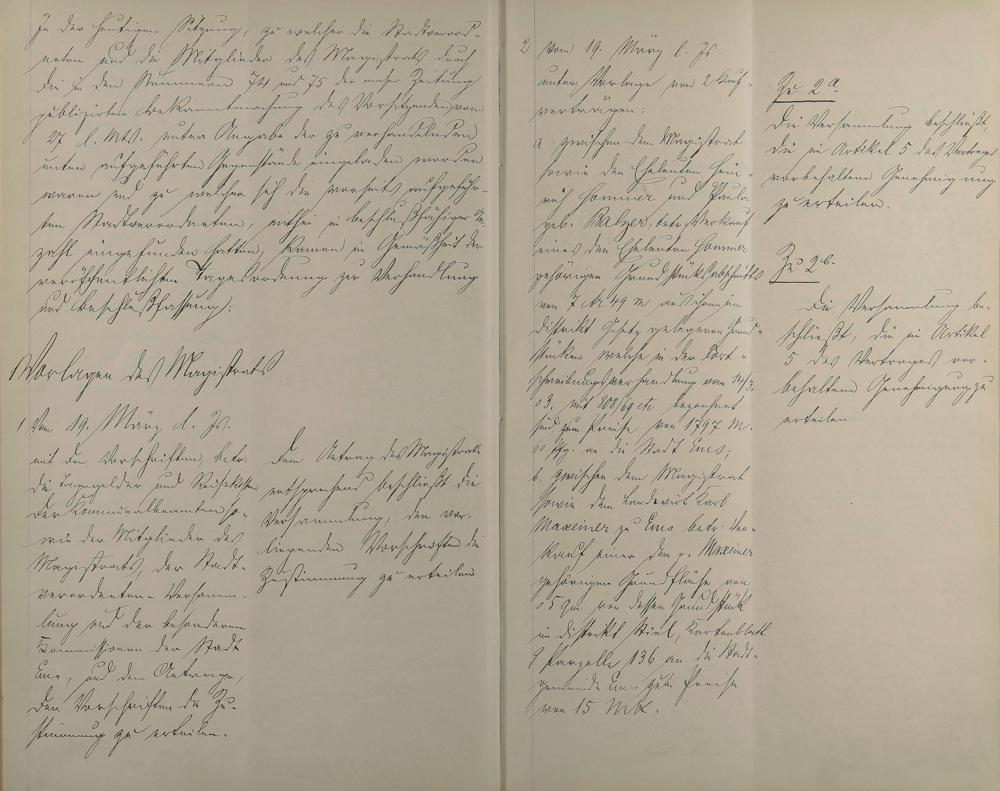 In der heutigen Sitzung, zu welcher die Stadtverord-
neten und die Mitglieder des Magistrats durch
die in den Nummern 74 und 75 der Emser Zeitung
publizirten Bekanntmachung des Vorsitzenden vom
27 l. Mts. unter Angabe der zu verhandelnden
unten aufgeführten Gegenstände eingeladen worden
waren und zu welcher sich die vorseits aufgeführ-
ten Stadtverordneten, mithin in beschlußfähiger An-
zahl eingefunden hatten, kamen in Gemäßheit der
veröffentlichten Tagesordnung zur Verhandlung
und Beschlußfassung:
I Vorlagen des Magistrats
1 Vom 19. März l. Js.
mit den Vorschriften, betr.
die Tagegelder und Reisekosten
der Kommunalbeamten so-
wie der Mitglieder des
Magistrats, der Stadt-
verordneten-Versamm-
lung und der besonderen
Kommissionen der Stadt
Ems, und dem Antrage,
den Vorschriften die Zu-
stimmung zu erteilen.
Dem Antrag des Magistrats
entsprechend beschließt die
Versammlung, den vor-
liegenden Vorschriften die
Zustimmung zu erteilen
2 Vom 19. März l. Js.
unter Vorlage von 2 Kauf-
verträgen:
a. zwischen dem Magistrat
sowie den Eheleuten Hein-
rich Sommer und Paula
geb. Balzer, betr. Verkauf
eines den Eheleuten Sommer
gehörigen Grundstücksabschnitts
von 7 Ar 49 m aus ihren im
Distrikt gelegenen Grund-
stücken welche in der Fort-
schreibungsverhandlung vom 14/3.
03. mit 808/69 etc bezeichnet
sind zum Preise von 1797 M.
60 Pfg. an die Stadt Ems;
b. zwischen dem Magistrat
sowie dem Landwirt Karl
Maxeiner zu Ems betr. Ver-
kauf einer dem p. Maxeiner
gehörigen Grundfläche von
05 qm von dessen Grundstück
im Distrikt Kartenblatt
9 Parzelle 136 an die Stadt-
gemeinde Ems zum Preise
von 15 Mk.
Zu 2a.
Die Versammlung beschließt,
die in Artikel 5 des Vertrages
vorbehaltene Genehmigung
zu erteilen.
Zu 2b.
Die Versammlung be-
schließt, die in Artikel
5 des Vertrages vor-
behaltene Genehmigung zu
erteilen.